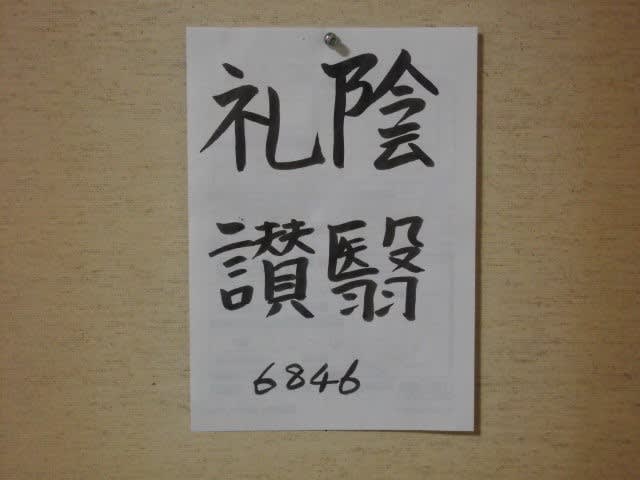 陰翳
礼讃
6846